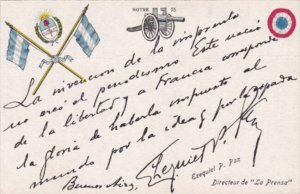 NOTRE 75
La invencion de la imprenta
no creó el periodismo. Este nació
de la libertad y a Francia corresponde
la gloria de haberla impuesto al
mundo por la idea y por la espada
Buenos Aires,
Ezequiel P. Paz
Ezequiel P. Paz
Directeur de "La Prensa"